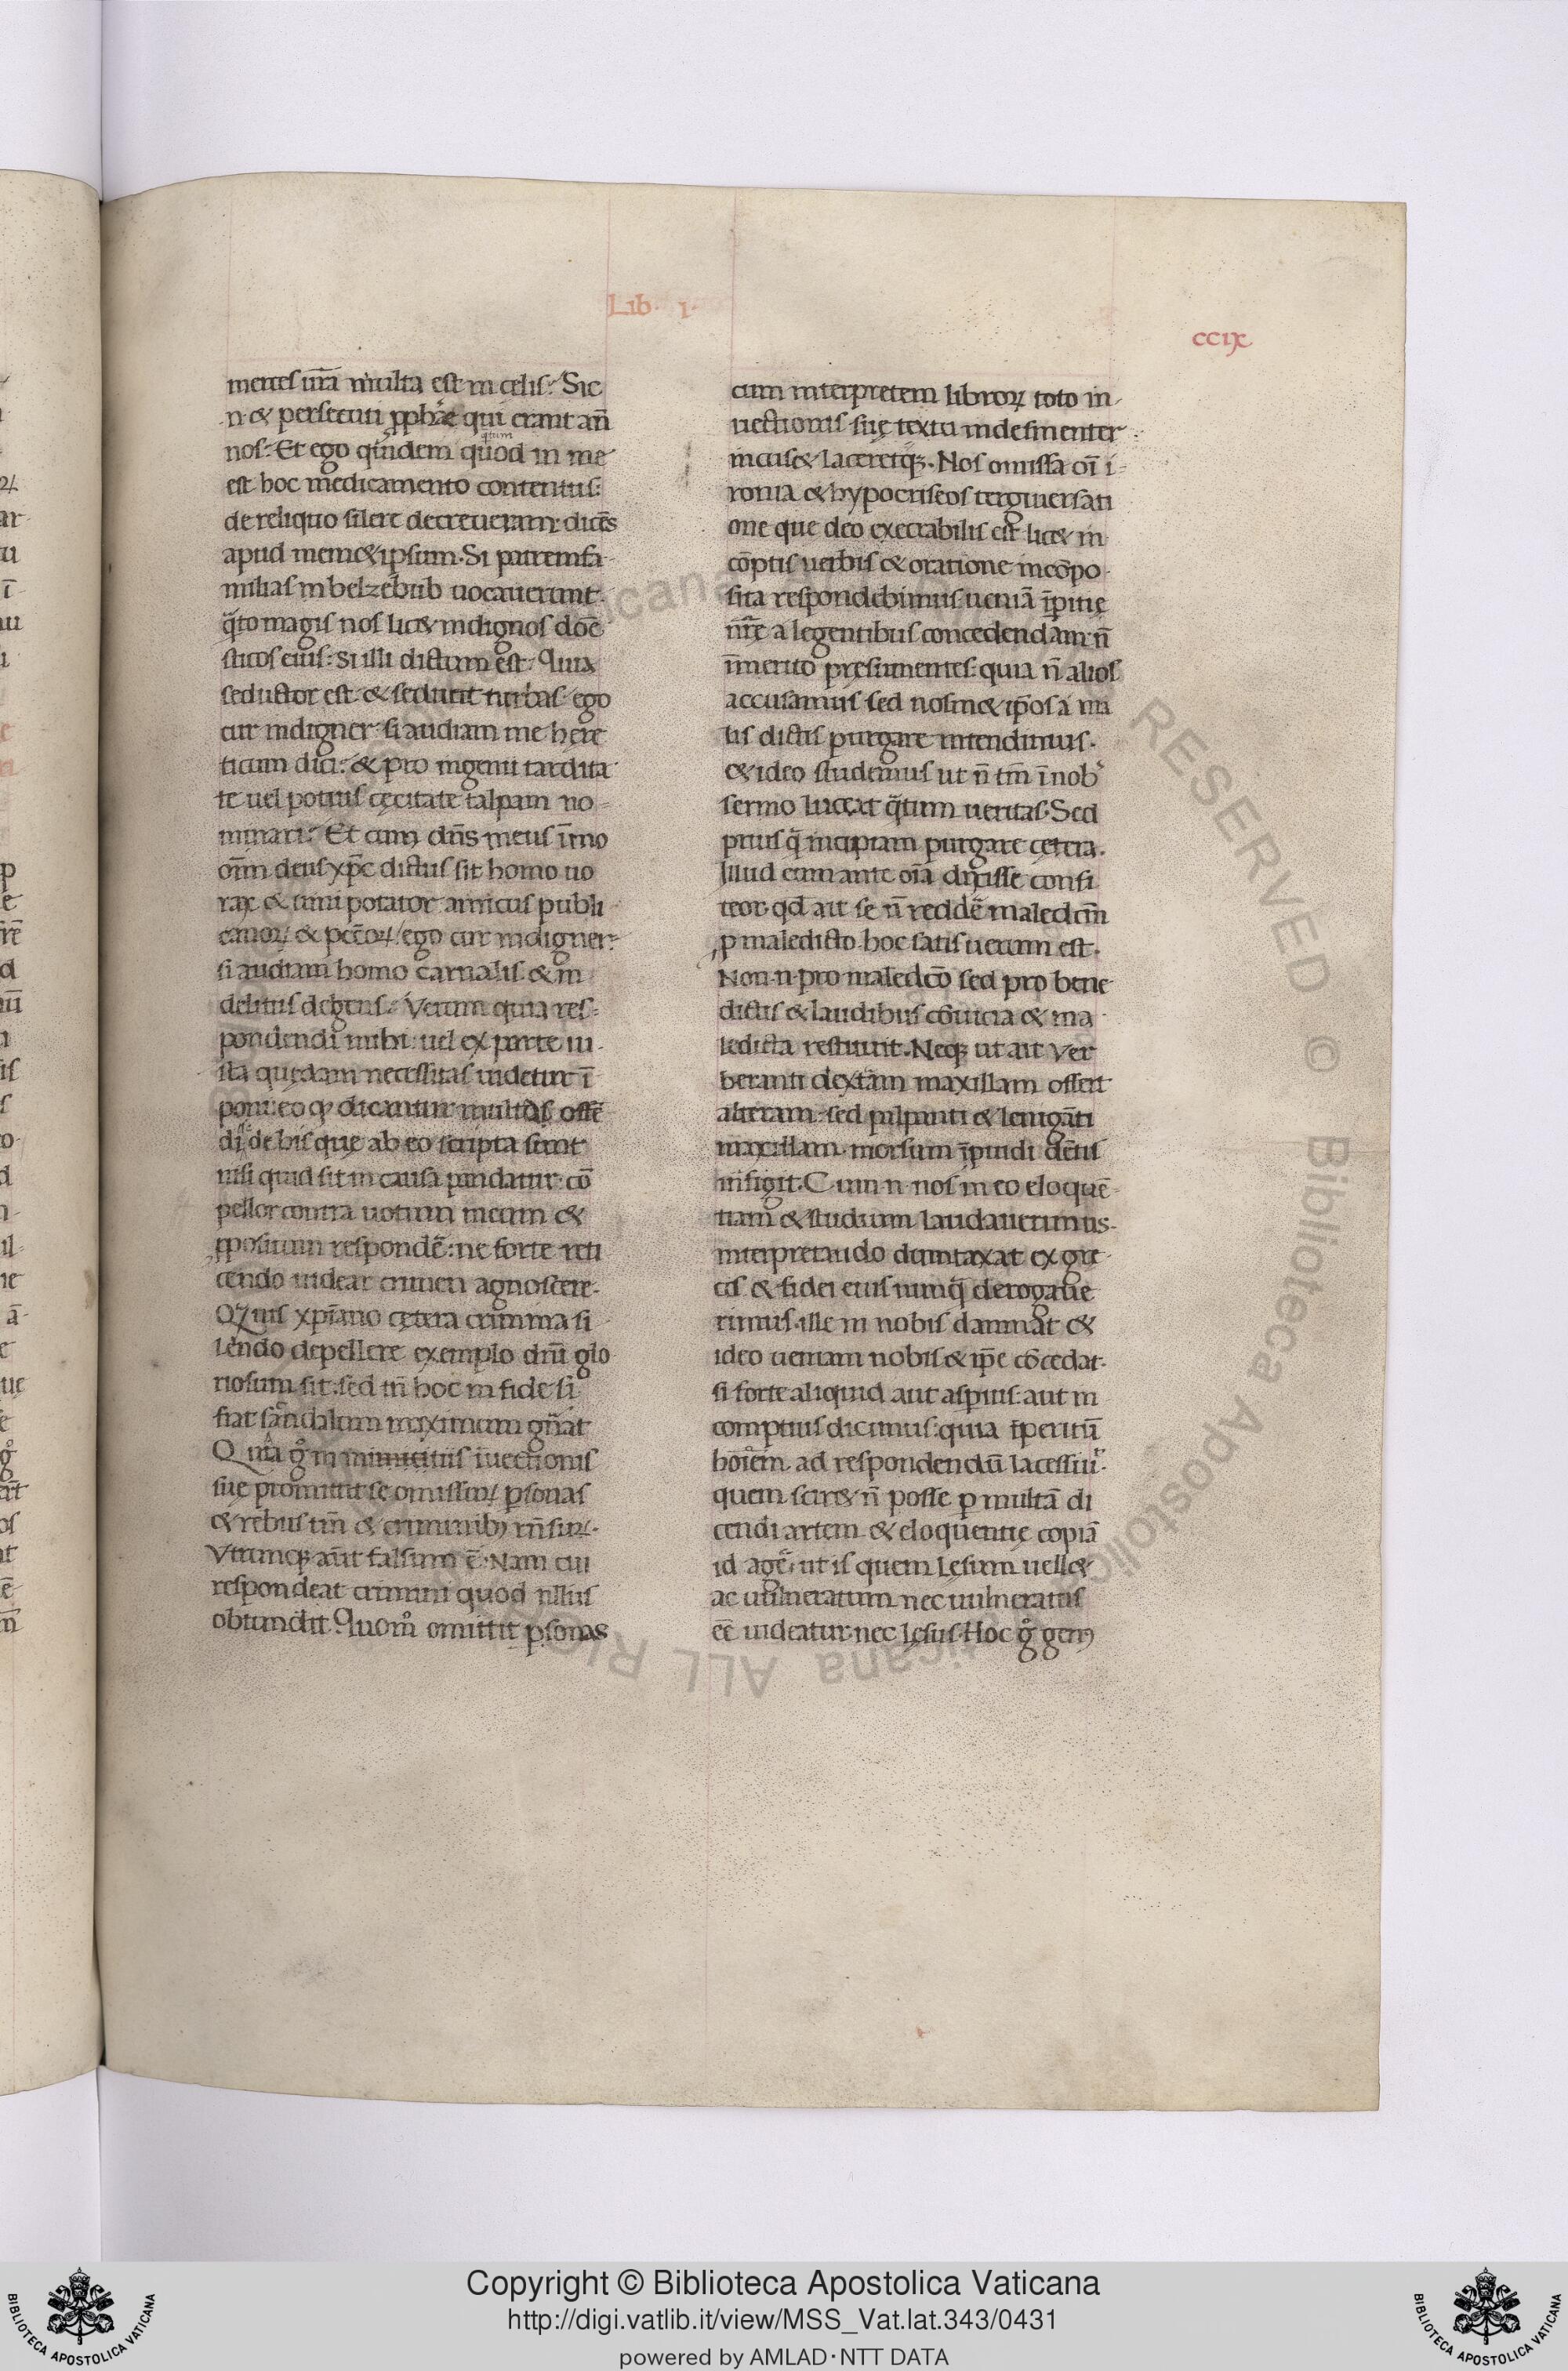 Lib. I.
ccix
merces ura̅ multa est in celis. Sic
.n. & persecuti ꝓphe̅ qui erant an̅
nos. Et ego quidem quod in me
qtum
est hoc medicamento contentus.
de reliquo silere decreueram dice̅s
apud memet ipsum. Si patremfa-
milias in belzebub uocauerunt
q̅to magis nos lic& indignos dome̅
sticos eius. Si illi dictum est. Quia
seductor est & seducit turbas ego
cur indigner si audiam me here
ticum dici. & pro ingenii tardita
te uel potius cęcitate talpam no-
minari. Et cum dn̅s meus i̅mo
oi̅m deus xp̅c dictus sit homo uo
rax & uini potator amicus publi-
canoꝝ & pcc̅oꝝ ego cur indigner.
si audiam homo carnalis & in
delitiis degens. Verum quia res-
pondendi mihi uel ex parte iu-
sta quędam necessitas uidetur i̅
poni. eo ꝙ dicantur multos offe̅
di de his que ab eo scripta sunt
nisi quid sit in causa pandatur. co̅
pellor contra uotum meum &
ꝓpositum responde̅. ne forte reti
cendo uidear crimen agnoscere.
Quis xpi̅ano cętera crimina si
lendo depellere exemplo dni̅ glo
riosum sit. sed tn̅ hoc in fide si
fiat scandalum maximum gn̅at
Quia gͦ in initiis i̅uectionis
suę promittit se omissuꝝ ꝑsonas
& rebus tm̅ & criminibꝫ rn̅suꝝ.
Vtrumqꝫ aut̅ falsum e̅. Nam cui
respondeat crimini quod nllius
obtundit. Quomͦ omittit ꝑsonas
cum interpretem libroꝝ toto in-
uectionis suę textu indesinenter
incus& laceretqꝫ. Nos omissa oi̅ i-
ronia & hypocriseos tergiuersati
one que deo execrabilis est lic& in
co̅ptis uerbis & oratione inco̅po-
sita respondebimus. uenia̅ i̅peritię
nr̅ę a legentibus concedendam n̅
i̅merito presumentes. quia n̅ alios
accusamus sed nosm& ip̅os a ma
lis dictis purgare intendimus.
& ideo studemus ut n̅ tm̅ i̅ nob
sermo luceat q̅tum ueritas. Sed
prius q̅ incipiam purgare cętera.
Illud eum ante oi̅a dixisse confi
teor. qd̅ ait se n̅ redde̅ maledcm̅
ꝑ maledicto hoc satis uerum est.
Non .n. pro maledco̅ sed pro bene
dictis & laudibus co̅uicia & ma
ledicta restituit. Neqꝫ ut ait ver
beranti dextam maxillam offert
alteram. sed palpanti & leniga̅ti
maxillam morsum i̅puidi de̅tis
infigit. Cum .n. nos in eo eloque̅
tiam & studium laudauerimus.
interpretando dumtaxat ex gre
cis & fidei eius nunq̅ derogaue
rimus. ille in nobis damnat &
ideo ueniam nobis & ip̅e co̅cedat.
si forte aliquid aut asperius. aut in
comptius dicimus. quia i̅peritu̅
hoi̅em ad respondendu̅ lacessiu̅.
quem scir& n̅ posse ꝑ multa̅ di
cendi artem & eloquentię copia̅
id age̅. ut is quem lesum uell&
ac uulneratum nec uulneratus
ee̅ uideatur. nec lęsus. Hoc gͦ genꝰ
Copyright © Biblioteca Apostolica Vaticana
http://digi.vatlib.it/view/MSS_Vat.lat.343/0431
powered by AMLAD·NTT DATA